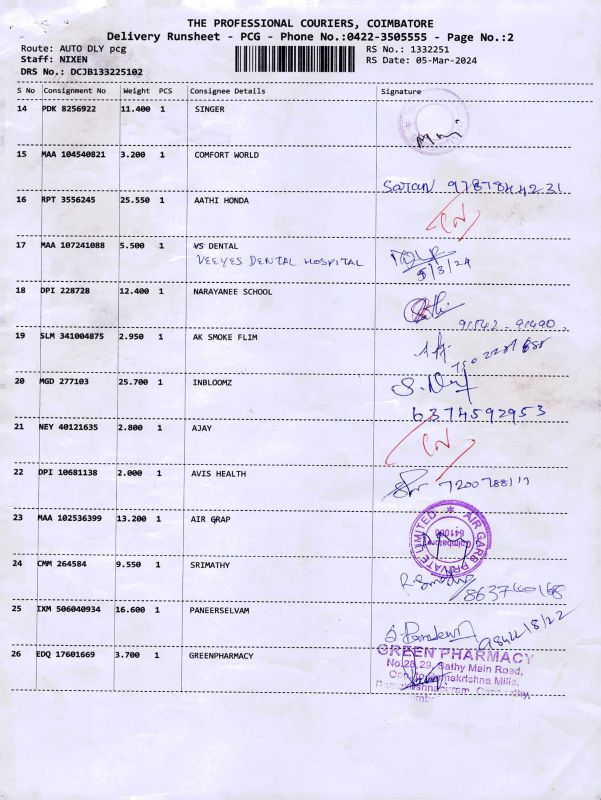 THE PROFESSIONAL COURIERS, COIMBATORE
Delivery Runsheet - PCG - Phone No.:0422-3505555 - Page No.:2
Route: AUTO DLY pcg RS No.: 1332251
Staff: NIXEN RS Date: 05-Mar-2024
DRS No.: DCJB133225102
S No Consignment No Weight PCS Consignee Details Signature
14 PDK 8256922 11.400 1 SINGER
15 MAA 104540821 3.200 1 COMFORT WORLD
16 RPT 3556245 25.550 1 AATHI HONDA
17 MAA 107241088 5.500 1 VS DENTAL
VEEYES DENTAL HOSPITAL
5/3/24
18 DPI 228728 12.400 1 NARAYANEE SCHOOL
19 SLM 341004875 2.950 1 AK SMOKE FLIM
20 MGD 277103 25.700 1 INBLOOMZ
6374592953
21 NEY 40121635 2.800 1 AJAY
22 DPI 10681138 2.000 1 AVIS HEALTH
23 MAA 102536399 13.200 1 AIR GRAP
AIR GARB PRIVATE LIMITED
Coimbatore
24 CMM 264584 9.550 1 SRIMATHY
25 IXM 506040934 16.600 1 PANEERSELVAM
26 EDQ 17601669 3.700 1 GREENPHARMACY
GREEN PHARMACY
No.28,29, Sathy Main Road,